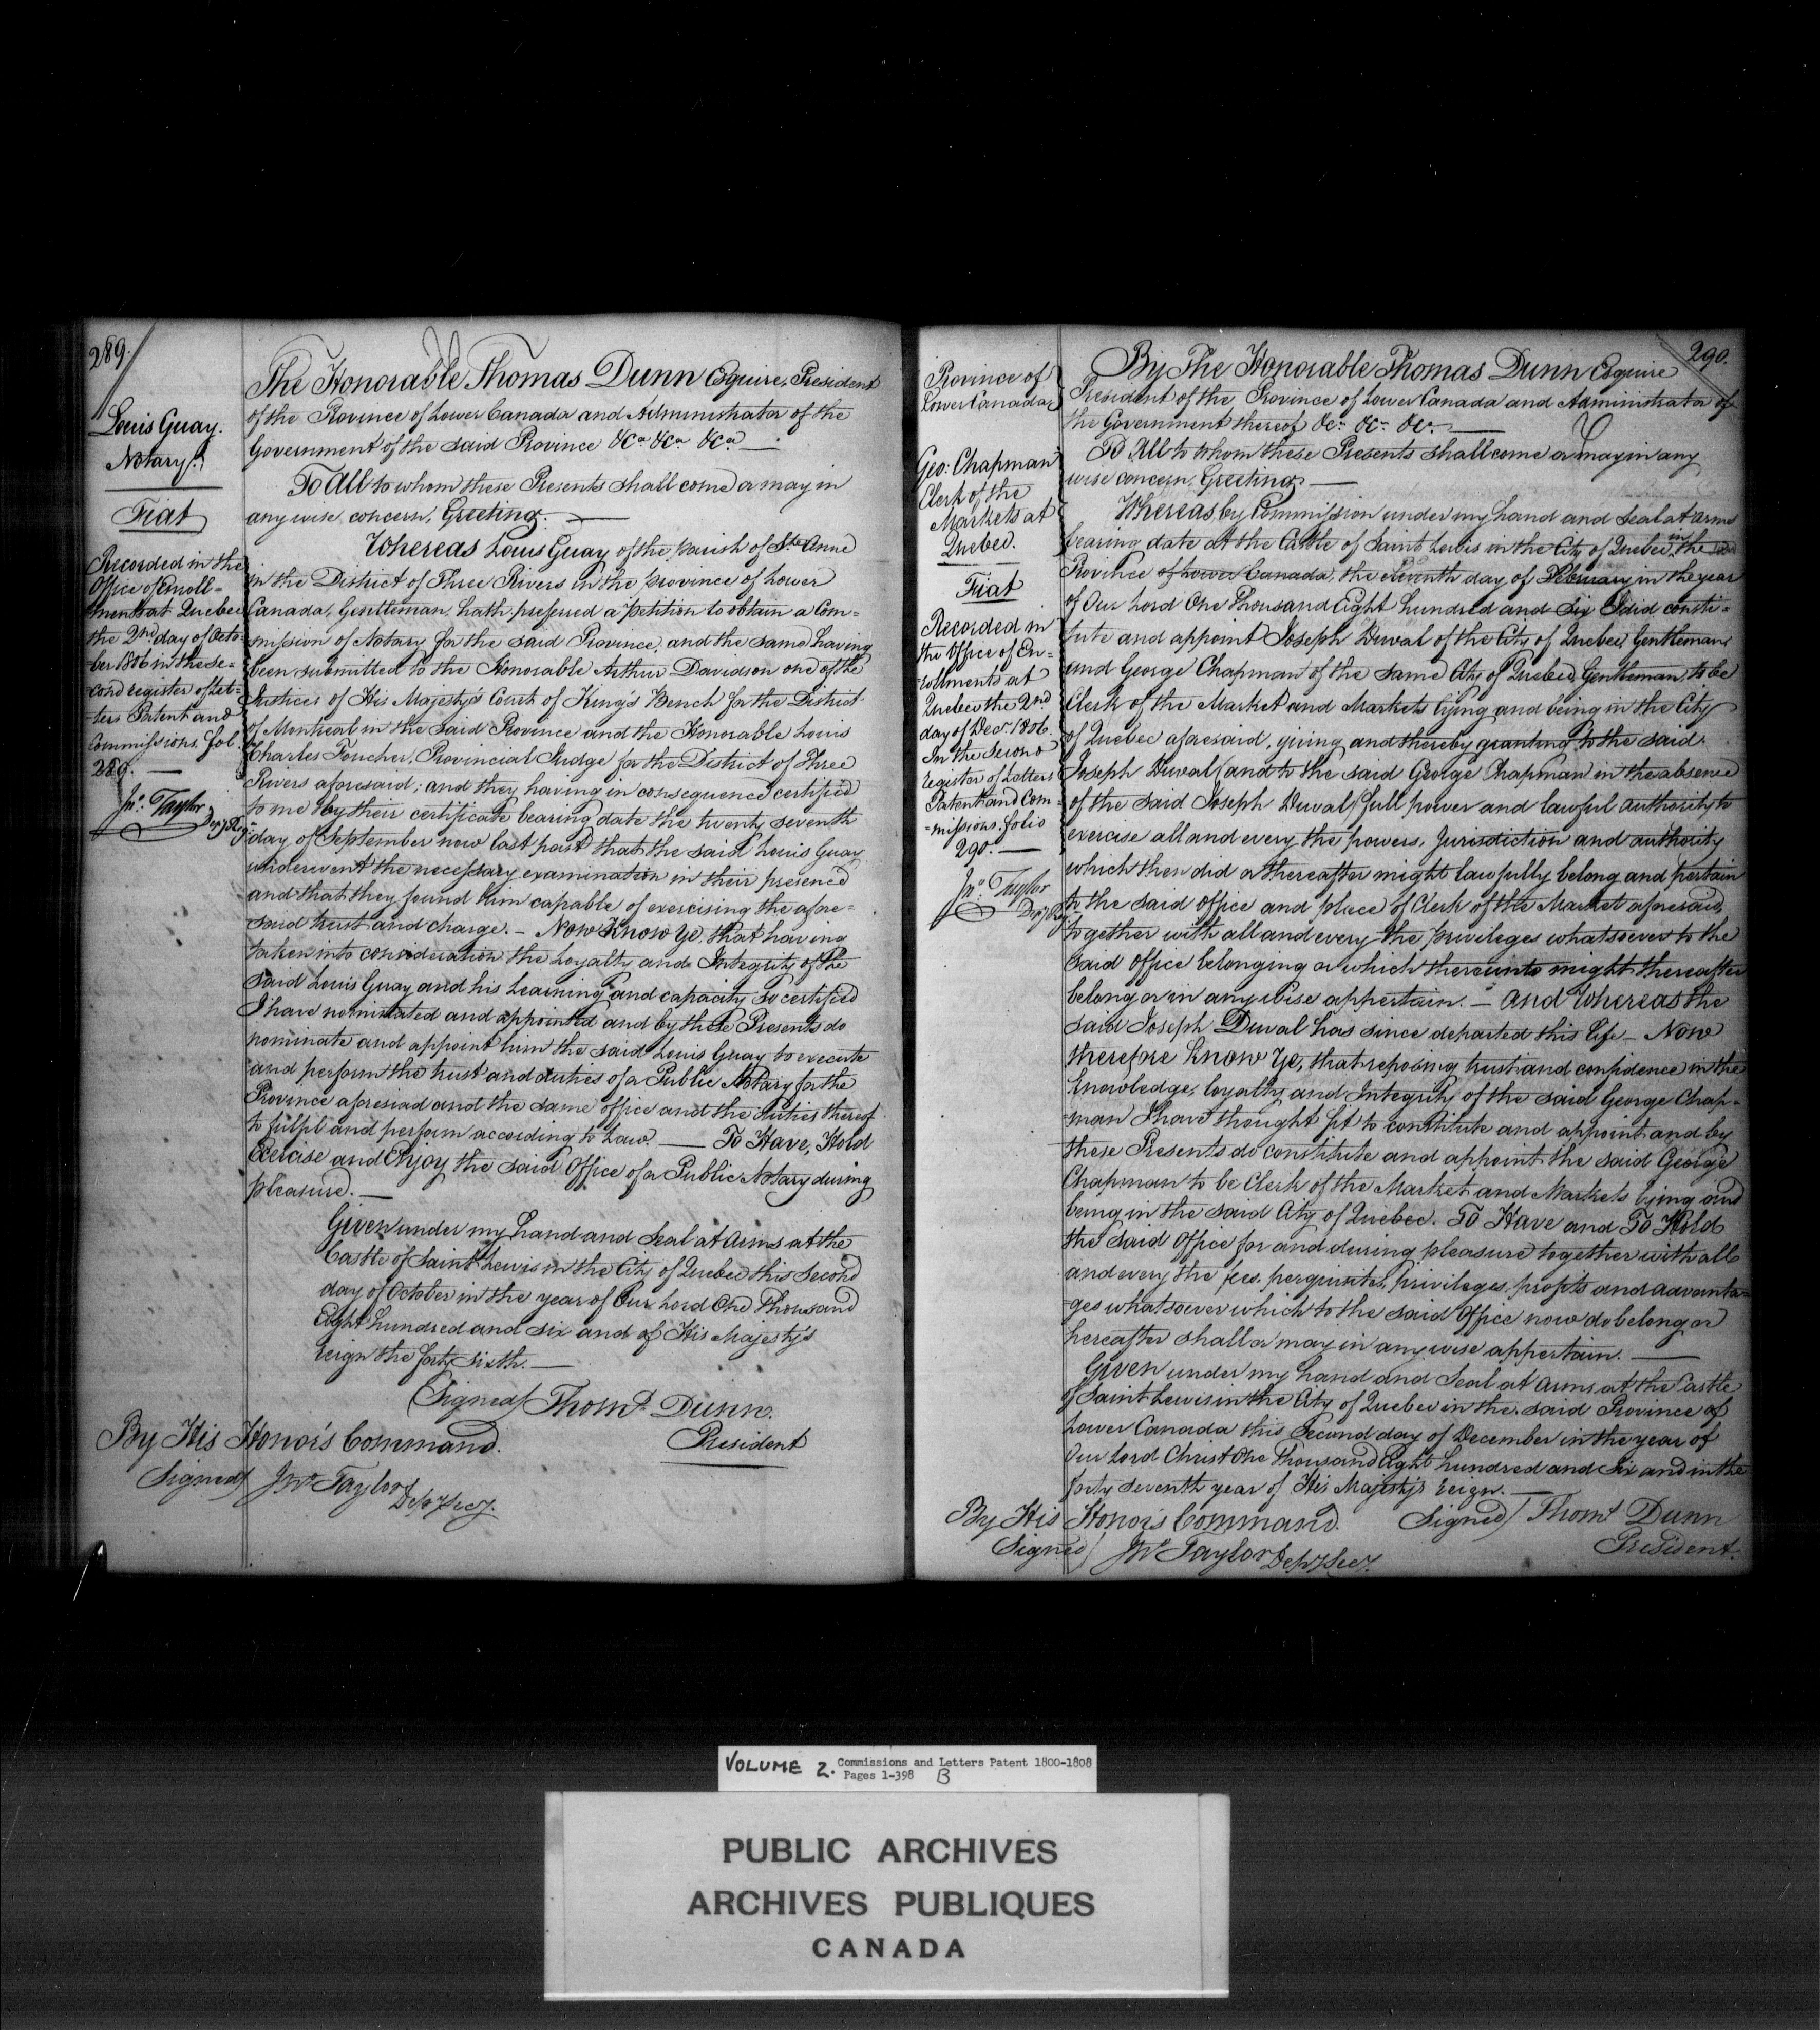 289.
Louis Guay.
Notary.
Fiat
Recorded in the
Office of Enroll=
ments at Quebec
the 2nd day of Octo=
=ber 1806 in the se=
=cond register of Let=
=ters Patent and
Commissions. fol.
289. —
Jno. Taylor
Depy Regr
The Honorable Thomas Dunn Esquire, President
of the Province of Lower Canada and Administrator of the
Government of the said Province &ca &ca &ca —
To All to whom these Presents shall come or may in
any wise concern, Greeting. —
Whereas Louis Guay of the parish of Ste Anne
in the District of Three Rivers in the province of Lower
Canada, Gentleman, hath preferred a petition to obtain a Com=
mission of Notary for the said Province, and the same having
been submitted to the Honorable Arthur Davidson one of the
Justices of His Majesty's Court of King's Bench for the District
of Montreal in the said Province and the Honorable Louis
Charles Foucher, Provincial Judge for the District of Three
Rivers aforesaid; and they having in consequence certified
to me by their certificate bearing date the twenty seventh
day of September now last past that the said Louis Guay
underwent the necessary examination in their presence
and that they found him capable of exercising the afore=
said trust and charge. – Now Know Ye, that having
taken into consideration the Loyalty and Integrity of the
said Louis Guay and his Learning and capacity so certified
I have nominated and appointed and by these Presents do
nominate and appoint him the said Louis Guay to execute
and perform the trust and duties of a Public Notary for the
Province aforesaid and the same office and the duties thereof
to fulfil and perform according to Law. — To Have, Hold
Exercise and Enjoy the said Office of a Public Notary during
pleasure. —
Given under my hand and Seal at Arms at the
Castle of Saint Lewis in the City of Quebec this Second
day of October in the year of Our Lord One Thousand
Eight hundred and six and of His Majesty's
reign the forty sixth. —
(Signed) Thoms Dunn.
President
By His Honor's Command.
Signed) Jno Taylor
Depy Secy.
290.
Province of
Lower Canada
Geo: Chapman
Clerk of the
Markets at
Quebec.
Fiat
Recorded in
the Office of En=
=rollments at
Quebec the 2nd
day of Decr. 1806.
In the Second
register of Letters
Patent and Com=
=missions. folio
290. —
Jno Taylor
Depy Regr
By The Honorable Thomas Dunn Esquire
President of the Province of Lower Canada and Administrator of
the Government thereof &c. &c. &c. —
To All to whom these Presents shall come or may in any
wise concern, Greeting —
Whereas by Commission under my hand and seal at arms
bearing date at the Castle of Saint Lewis in the City of Quebec, in the
Province of Lower Canada, the eleventh day of February in the year
of Our Lord One Thousand Eight hundred and Six I did consti=
tute and appoint Joseph Duval of the City of Quebec, Gentleman,
and George Chapman of the same City of Quebec, Gentleman, to be
Clerk of the Market and Markets lying and being in the City
of Quebec aforesaid, giving and thereby granting to the said
Joseph Duval (and to the said George Chapman in the absence
of the said Joseph Duval) full power and lawful authority to
exercise all and every the powers, Jurisdiction and authority
which then did or thereafter might lawfully belong and pertain
to the said office and place of Clerk of the Market aforesaid,
together with all and every the privileges whatsoever to the
said office belonging or which thereunto might thereafter
belong or in any wise appertain. – And Whereas the
said Joseph Duval has since departed this life – Now
therefore Know Ye, that reposing trust and confidence in the
knowledge, loyalty and Integrity of the said George Chap=
=man I have thought fit to constitute and appoint and by
these Presents do constitute and appoint the said George
Chapman to be Clerk of the Market and Markets lying and
being in the said City of Quebec. To Have and To Hold
the said Office for and during pleasure together with all
and every the fees, perquisites, privileges, profits and advanta=
=ges whatsoever which to the said Office now do belong or
hereafter shall or may in any wise appertain. —
Given under my hand and Seal at Arms at the Castle
of Saint Lewis in the City of Quebec in the said Province of
Lower Canada this Second day of December in the year of
Our Lord Christ One Thousand Eight hundred and Six and in the
forty seventh year of His Majesty's reign. —
By His Honor's Command. Signed) Thoms Dunn
Signed) Jno Taylor Depy Secy. President.
VOLUME 2. Commissions and Letters Patent 1800-1808
Pages 1-398 B
PUBLIC ARCHIVES
ARCHIVES PUBLIQUES
CANADA